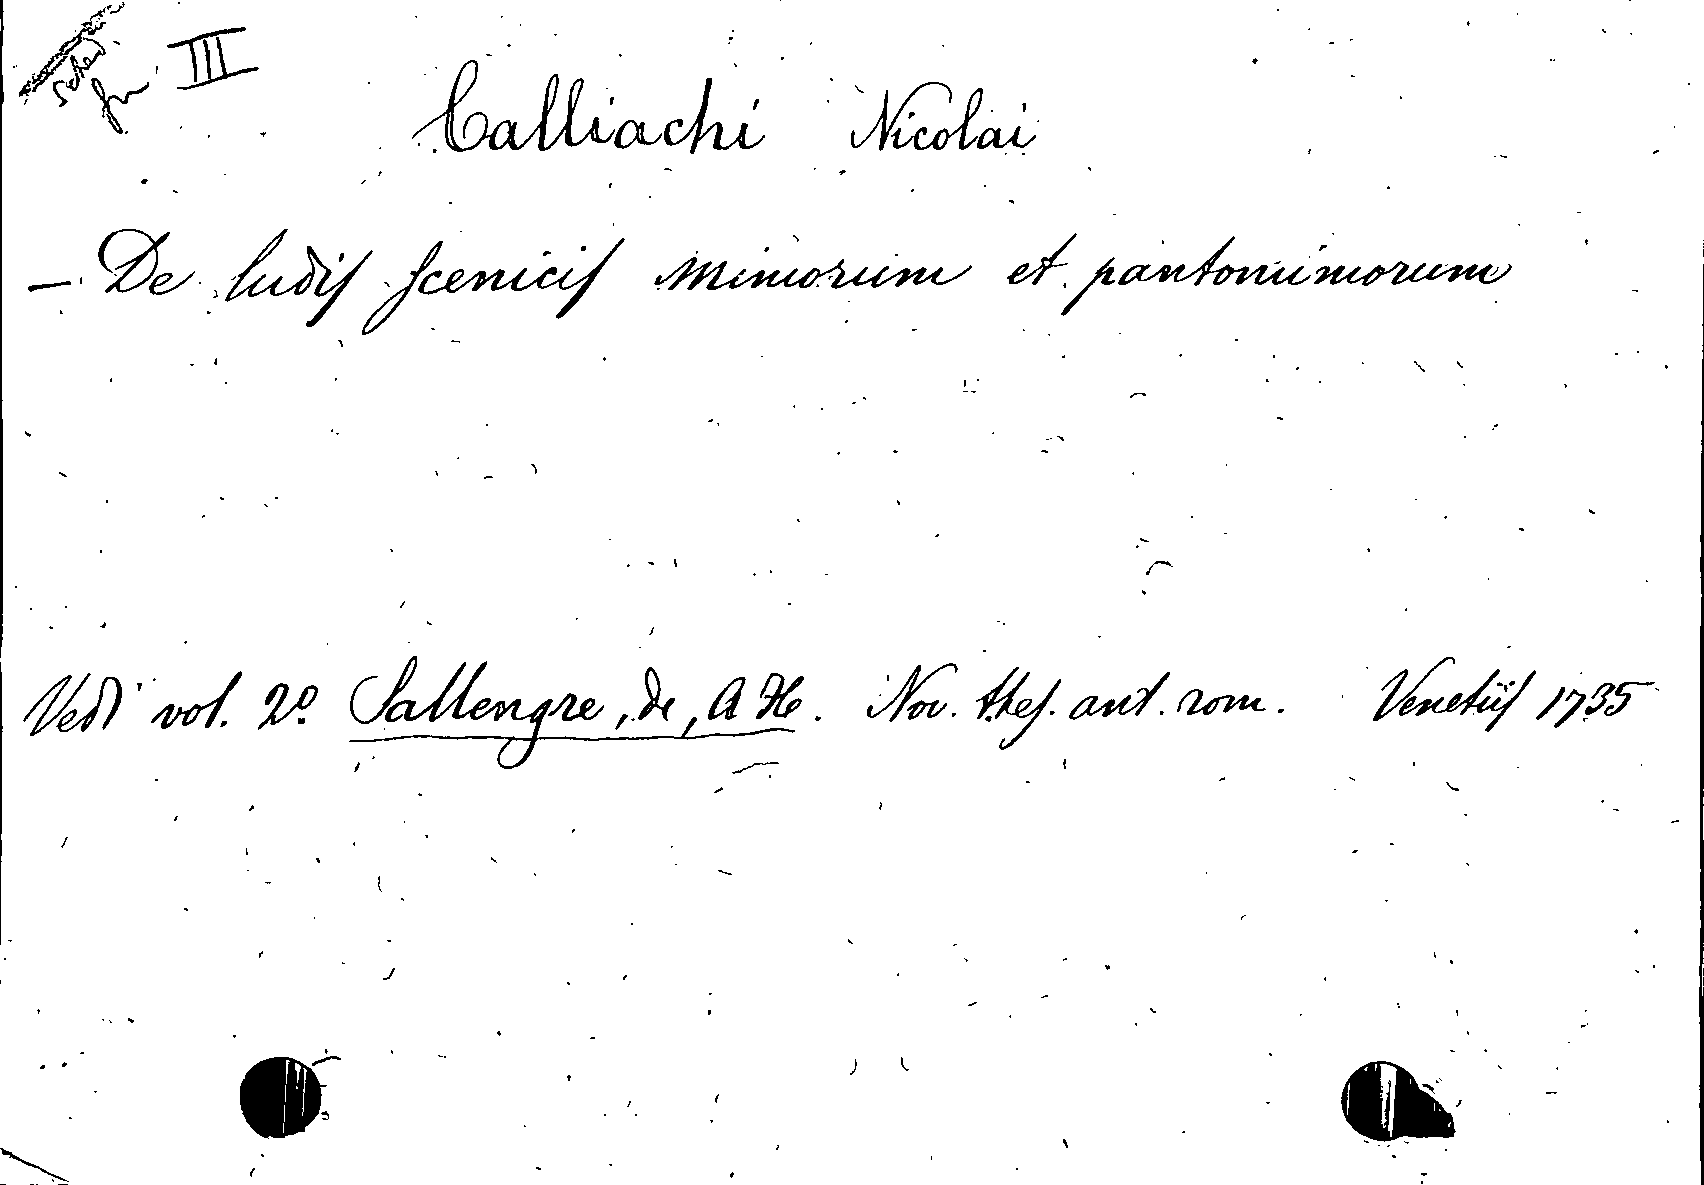 III
Calliachi Nicolai
— De ludis scenicis mimorum et pantomimorum
Vedi vol. 2º Sallengre, de, A H. Nov. thes. ant. rom. Venetiis 1735